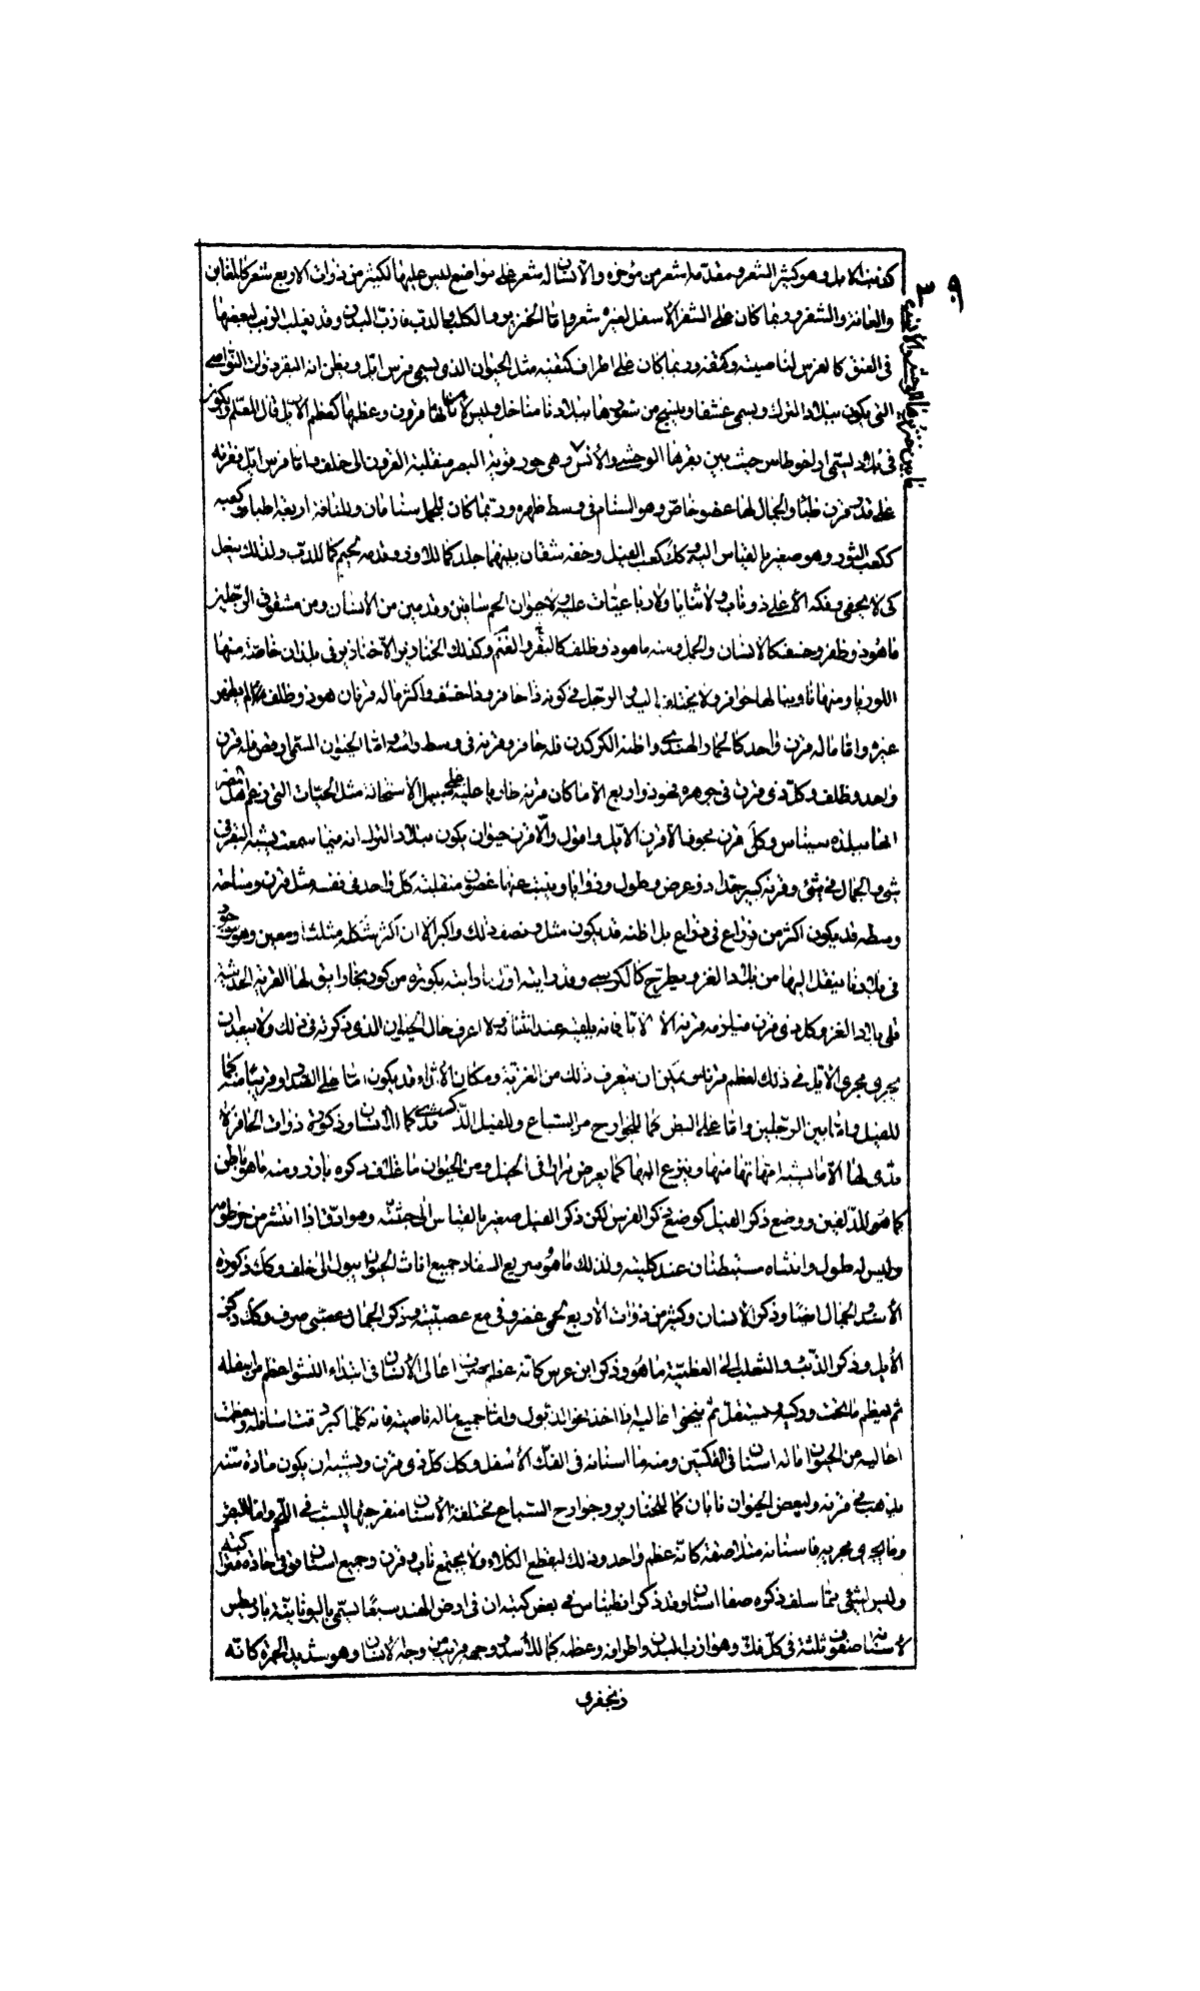 كذنب الابل وهو كثير الشعر ومقدمه اشعر من مؤخره والانسان له شعر على مواضع ليس عليها لكثير من ذوات الاربع شعر كالمغابن
والعانة والشفر وربما كان على الشفر الاسفل لغيره شعر واما الخنزير والكلب والدب فازب البدن وقد يغلب الزبب لبعضها
فى العنق كالفرس لناصيته وكتفه وربما كان على اطراف كتفيه مثل الحيوان الذى يسمى فرس ايل ويظن انه البقر ذوات النواصى
التى يكون ببلاد الترك ويسمى غشفا وينسج من شعورها ببلادنا مناخل وليس لاناثها قرون وعظمها كعظم الايل قال المعلم ويكون
فى بلاد يسمى ارخوطاس حيث بين بقرها الوحشى والانسى وهى حود قوية البصر منقلبة القرون الى خلف واما فرس ايل فقرنه
على قدر قرن ظبى والجمال لها عضو خاص وهو السنام فى وسط ظهره وربما كان للجمل سنامان وللناقة اربعة اطباء وكعبه
ككعب الثور وهو صغير بالقياس اليه وكذلك كعب الفيل وخفه شقان بينهما جلد كما للاوز وقدمه لحيم كما للدب ولذلك ينعل
كى لا يحفى وفكه الاعلى ذو ناب ولا ثنايا ولا رباعيات عليه ولا حيوان الحم ساقين وقدمين من الانسان ومن مشقوق الرجلين
ما هو ذو ظفر وخف كالانسان والجمل ومنه ما هو ذو ظلف كالبقر والغنم وكذلك الخنازير الا خنازير فى بلدان خاصة منها
لها حوافر ولا يختلف اليد والرجل فى كونه ذا حافر وذا خف واكثر ما له قرنان هو ذو ظلف لم يظهر
غيره واما ما له قرن واحد كالحمار الهندى واظنه الكركدن فله حافر وقرنه فى وسط راسه واما الحيوان المسمى فله قرن
واحد وظلف وكل ذى قرن فى جوهره فهو ذو اربع الا ما كان قرنه عاريا عليه على سبيل الاستعارة مثل الحيات التى زعم اهل مصر
انها ببلدة سيناس وكل قرن مجوف الا قرن الايل واقول والا قرن حيوان يكون ببلاد الترك انه فيما سمعت يشبه البقر فى
شىء والجمال فى شىء وقرنه كبير جدا ذو عرض وطول وزوايا وينبت عنها غصون منقلبة كل واحد فى نفسه مثل قرن ومساحة
وسطه قد يكون اكثر من ذراع فى ذراع بل اظنه قد يكون مثل ونصف ذلك واكبر الا ان اكثر شكله مثلث او معين وهو موجود
فى بلادنا ينقل اليها من بلاد الغز ويطرح كالكرسى وقد رايته اول ما رايته بكورة من كور بخارا يق لها القرية الحديثة
تلى بلاد الغز وكل ذى قرن فيلزمه قرنه الا الايل فانه يلقيه عند ولا اعرف حال الحيوان الذى ذكرته فى ذلك ولا يبعد ان
يجرى مجرى الايل فى ذلك لعظم قرنه ويمكن ان يتعرف ذلك من الغزية ومكان الاثداء قد يكون اما على الصدر او قريبا منه كما
للفيل واما بين الرجلين واما على البطن كما للجوارح من السباع وللفيل الذكر ثدى كما للانسان وذكورة ذوات الحافر لا
ثدى لها الا ما يشبه امهاتها منها وينزع اليها كما يعرض مرارا فى الخيل ومن الحيوان ما غلاف ذكره بارز ومنه ما هو باطن
كما هو للدلفين ووضع ذكر الفيل كوضع ذكر الفرس لكن ذكر الفيل صغير بالقياس الى جثته وهو ادق اذا انتشر من خرطومه
وليس له طول وانثياه مستبطنان عند كليتيه ولذلك ما هو سريع السفاد جميع اناث الحيوان يبول الى خلف وكذلك ذكورة
الاسد والجمال ايضا وذكر الانسان وكثير من ذوات الاربع لحمى غضروفى مع عصبية وذكر الجمال عصبى صرف وكذلك ذكر
الايل وذكر الذئب والثعلب الى العظمية ما هو وذكر ابن عرس كانه عظم محض اعالى الانسان فى ابتداء النشو اعظم من اسفله
ثم يعظم ما تحت وركيه ويستقل ثم ينحنى اعاليه اذا اخذ نحو الذبول واما جميع ما له ناصية فانه كلما كبر دقت اسافله وعظمت
اعاليه من الحيوان ما له اسنان فى الفكين ومنه ما اسنانه فى الفك الاسفل وكذلك كل ذى قرن ويشبه ان يكون مادة سنه
يذهب فى قرنه ولبعض الحيوان نابان كما للخنازير وجوارح السباع مختلفة الاسنان منفرجها لينشب فى اللحم واما البقر
وما يجرى مجريه فاسنانه متلاصقة كانه عظم واحد وذلك ليقطع الكلاء ولا يجتمع ناب وقرن وجميع اسنان قوقى حادة متراكبة
وليس لشىء مما سلف ذكره صفا اسنان وقد ذكر اقطيناس فى بعض كتبه ان فى ارض الهند سبعا يسمى باليونانية
لاسنانه صفوف ثلثة فى كل فك وهو ازب البدن واطرافه وعظمه كما للاسد ووجهه قريب من وجه الانسان وهو شديد الحمرة كانه
زنجفرى